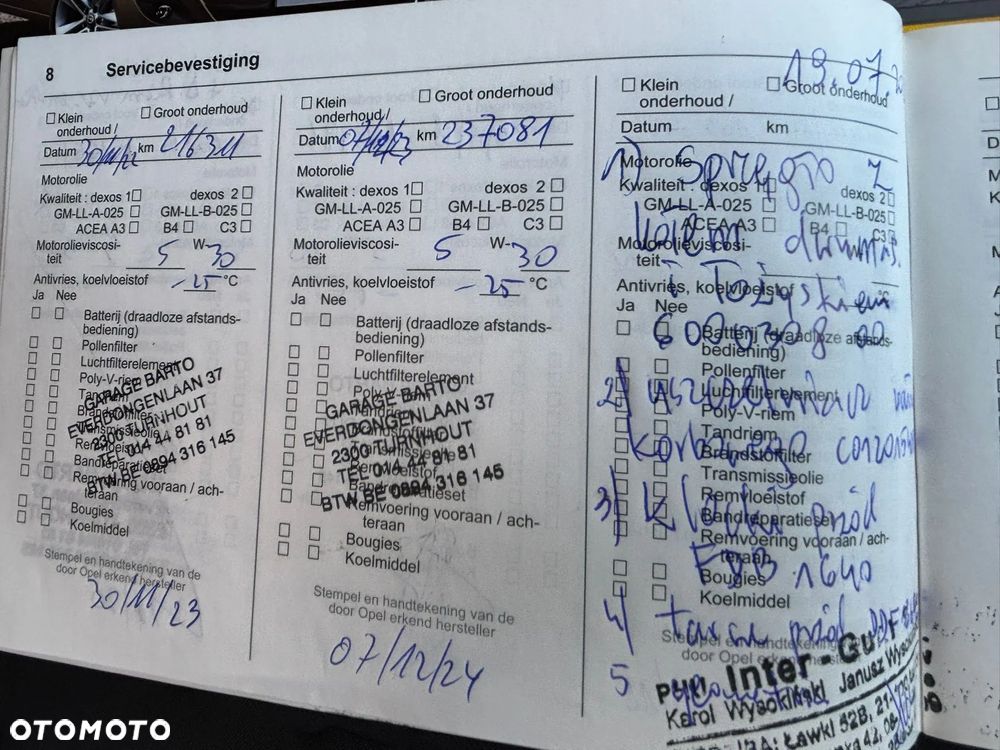 8 Servicebevestiging
Klein onderhoud / Groot onderhoud
Datum 30/11/22 km 216311
Motorolie
Kwaliteit : dexos 1 dexos 2
GM-LL-A-025 GM-LL-B-025
ACEA A3 B4 C3
Motorolieviscosi-
teit 5 W- 30
Antivries, koelvloeistof -25 °C
Ja Nee
Batterij (draadloze afstands-
bediening)
Pollenfilter
Luchtfilterelement
Poly-V-riem
Tandriem
Brandstoffilter
Transmissieolie
Remvloeistof
Bandreparatieset
Remvoering vooraan / ach-
teraan
Bougies
Koelmiddel
GARAGE BARTO
EVERDONGENLAAN 37
2300 TURNHOUT
TEL 014 44 81 81
BTW BE 0894 316 145
Stempel en handtekening van de
door Opel erkend hersteller
30/11/23
Klein onderhoud / Groot onderhoud
Datum 07/12/23 km 237081
Motorolie
Kwaliteit : dexos 1 dexos 2
GM-LL-A-025 GM-LL-B-025
ACEA A3 B4 C3
Motorolieviscosi-
teit 5 W- 30
Antivries, koelvloeistof -25 °C
Ja Nee
Batterij (draadloze afstands-
bediening)
Pollenfilter
Luchtfilterelement
Poly-V-riem
Tandriem
Brandstoffilter
Transmissieolie
Remvloeistof
Bandreparatieset
Remvoering vooraan / ach-
teraan
Bougies
Koelmiddel
GARAGE BARTO
EVERDONGENLAAN 37
2300 TURNHOUT
TEL 014 44 81 81
BTW BE 0894 316 145
Stempel en handtekening van de
door Opel erkend hersteller
07/12/24
19.07.
Klein onderhoud / Groot onderhoud
Datum km
Motorolie
Kwaliteit : dexos 1 dexos 2
GM-LL-A-025 GM-LL-B-025
ACEA A3 B4 C3
Motorolieviscosi-
teit
Antivries, koelvloeistof °C
Ja Nee
Batterij (draadloze afstands-
bediening)
Pollenfilter
Luchtfilterelement
Poly-V-riem
Tandriem
Brandstoffilter
Transmissieolie
Remvloeistof
Bandreparatieset
Remvoering vooraan / ach-
teraan
Bougies
Koelmiddel
1) Sprzęgło z
kołem
i łożyskiem
2)
3) Klocki przód
1640
4) przód
5
PHU Inter-
Karol Wysokiński Janusz
Ławki 52B, 21-
OTOMOTO